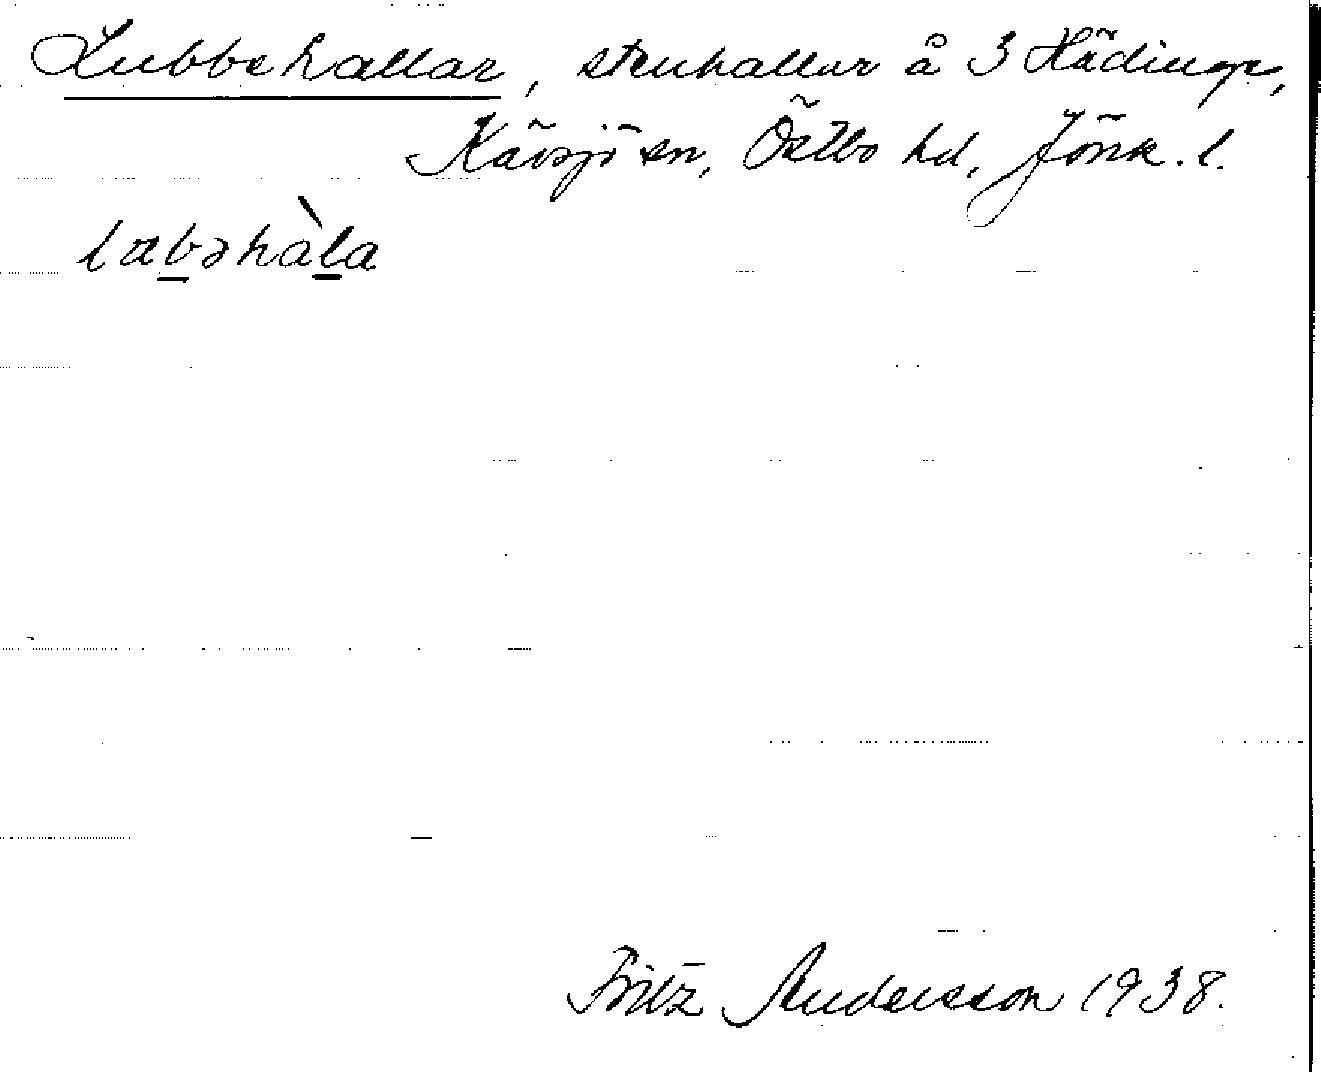 Lubbehallar, stenhallar å 3 Hädinge,
Kävsjö sn, Östbo hd, Jönk. l.
labəhàla
Fritz Andersson 1938.